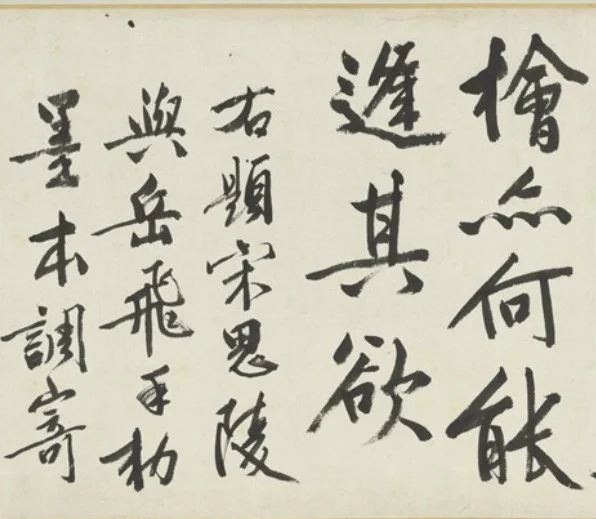 檜亦何能
逢其欲
右題宋思陵
與岳飛手勑
墨本調寄